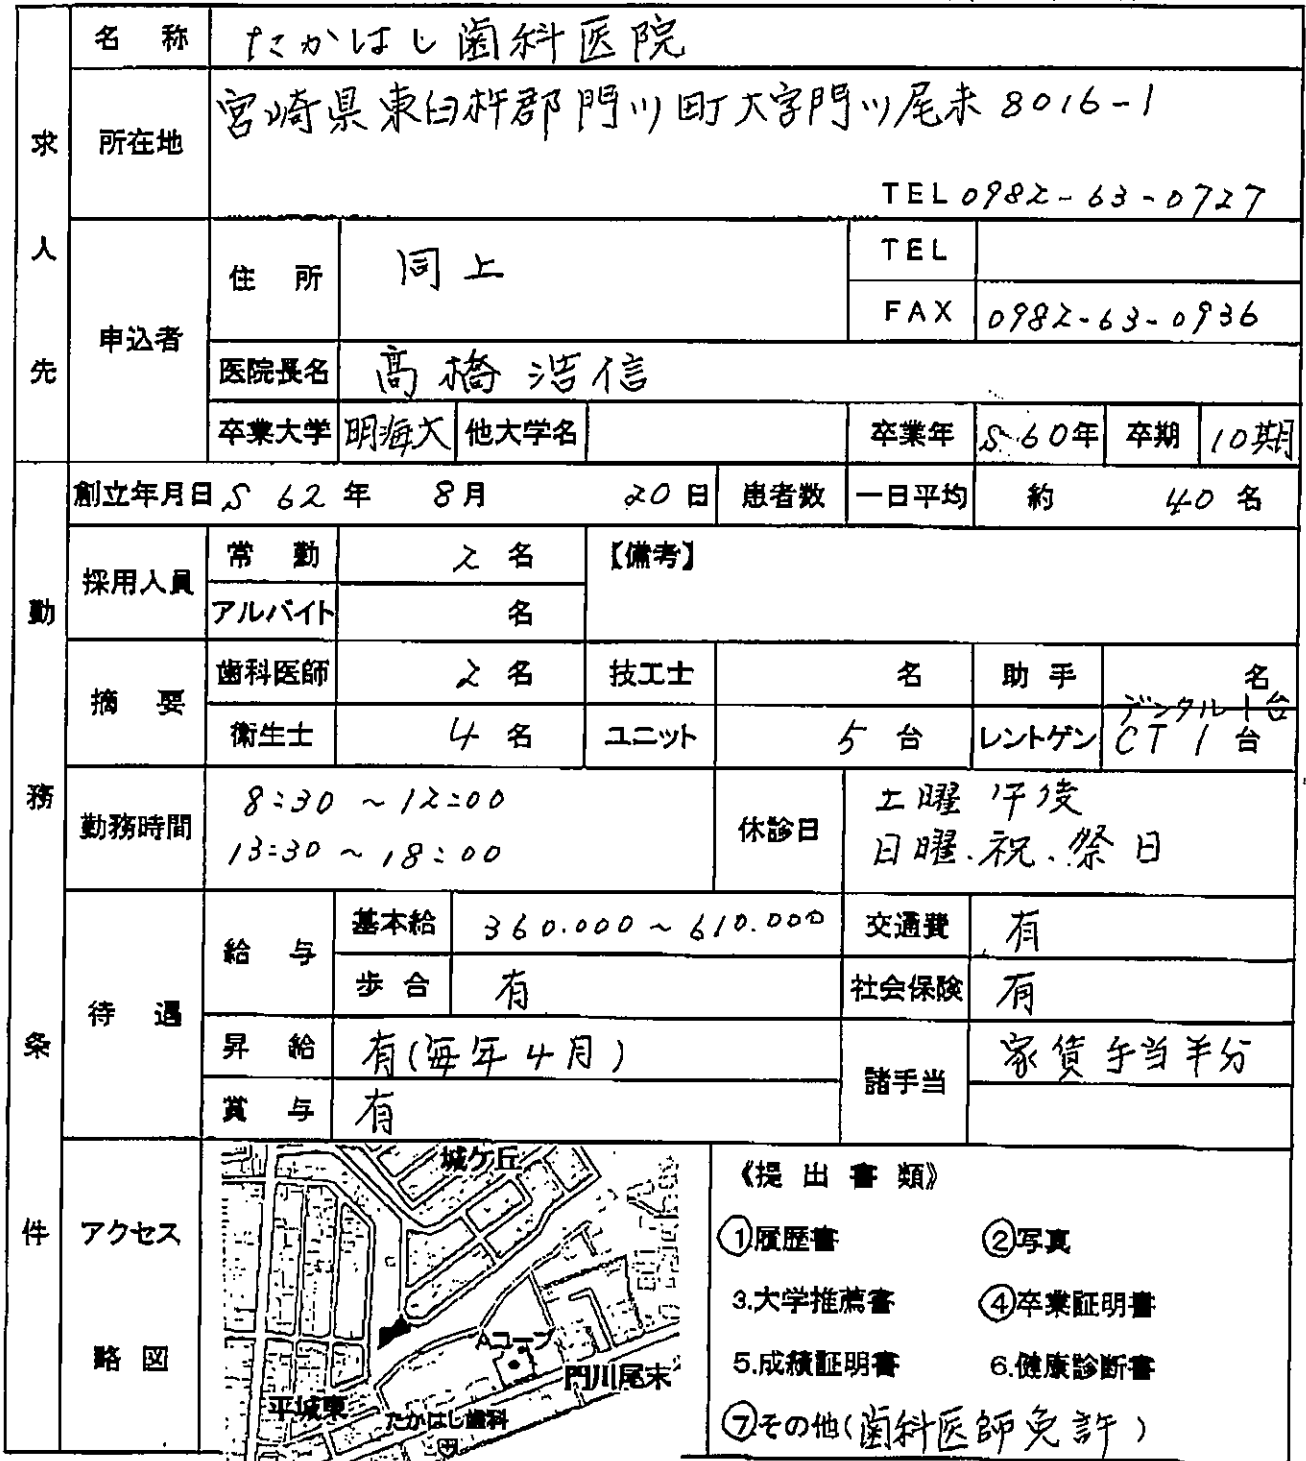 求人先
名称 たかはし歯科医院
所在地 宮崎県東臼杵郡門川町大字門川尾末8016-1
TEL 0982-63-0727
申込者 住所 同上 TEL
FAX 0982-63-0936
医院長名 高橋浩信
卒業大学 明海大 他大学名 卒業年 S.60年 卒期 10期
勤務条件
創立年月日 S 62年 8月 20日 患者数 一日平均 約 40名
採用人員 常勤 2名 【備考】
アルバイト 名
摘要 歯科医師 2名 技工士 名 助手 名
衛生士 4名 ユニット 5台 レントゲン デンタル1台
CT 1台
勤務時間 8:30~12:00
13:30~18:00
休診日 土曜午後
日曜.祝.祭日
待遇 給与 基本給 360.000~610.000 交通費 有
歩合 有 社会保険 有
昇給 有(毎年4月) 諸手当 家賃手当半分
賞与 有
アクセス略図
城ケ丘
Aコープ
門川尾末
平城東
たかはし歯科
《提出書類》
①履歴書 ②写真
3.大学推薦書 ④卒業証明書
5.成績証明書 6.健康診断書
⑦その他(歯科医師免許)